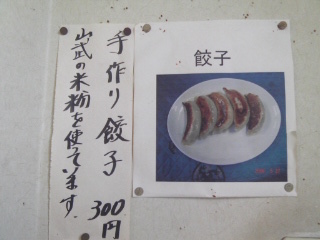 手作り餃子 300円
山武の米粉を使ってます。
餃子